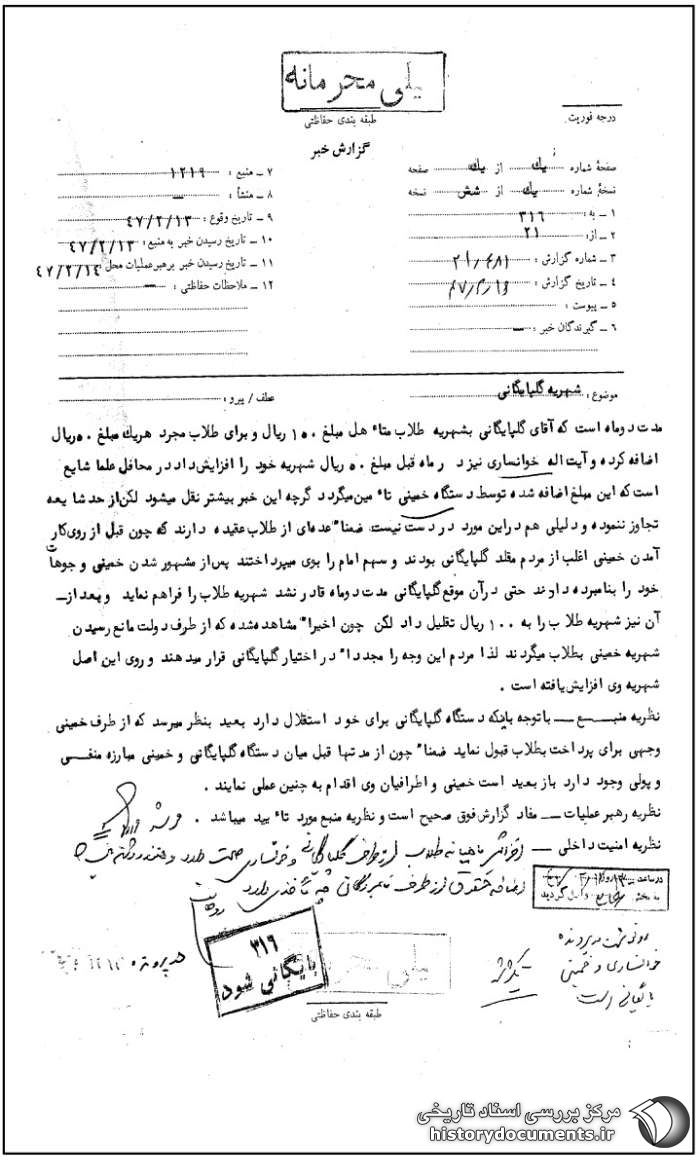 خیلی محرمانه
طبقه بندی حفاظتی
درجه فوریت:
گزارش خبر
صفحهٔ شماره یك از یك صفحه
نسخهٔ شماره یك از شش نسخه
۱ ـ به: ۳۱۶
۲ ـ از: ۲۱
۳ ـ شماره گزارش:
۴ ـ تاریخ گزارش:
۵ ـ پیوست:
۶ ـ گیرندگان خبر: ـ
۷ ـ منبع: ۱۲۱۹
۸ ـ منشأ: ـ
۹ ـ تاریخ وقوع: ۴۷/۲/۱۳
۱۰ ـ تاریخ رسیدن خبر به منبع: ۴۷/۲/۱۳
۱۱ ـ تاریخ رسیدن خبر برهبر عملیات محل ۴۷/۲/۱۴
۱۲ ـ ملاحظات حفاظتی: ـ
موضوع: شهریه گلپایگانی
عطف / پیرو:
مدت دوماه است که آقای گلپایگانی بشهریه طلاب متاٴهل مبلغ ۱۵۰ ریال و برای طلاب مجرد هریك مبلغ ۵۰ ریال
اضافه کرده و آیت اله خوانساری نیز در ماه قبل مبلغ ۵۰ ریال شهریه خود را افزایش داد در محافل علما شایع
است که این مبلغ اضافه شده توسط دستگاه خمینی تاٴمین میگردد گرچه این خبر بیشتر نقل میشود لکن از حد شایعه
تجاوز ننموده و دلیلی هم در این مورد در دست نیست ضمناً عده‌ای از طلاب عقیده دارند که چون قبل از روی کار
آمدن خمینی اغلب از مردم مقلد گلپایگانی بودند و سهم امام را بوی میپرداختند پس از مشهور شدن خمینی وجوهات
خود را بنامبرده دادند حتی در آن موقع گلپایگانی مدت دوماه قادر نشد شهریه طلاب را فراهم نماید و بعد از ـ
آن نیز شهریه طلاب را به ۱۰۰ ریال تقلیل داد لکن چون اخیراً مشاهده شده که از طرف دولت مانع رسیدن
شهریه خمینی بطلاب میگردند لذا مردم این وجه را مجدداً در اختیار گلپایگانی قرار میدهند و روی این اصل
شهریه وی افزایش یافته است .
نظریه منبــع ـ با توجه باینکه دستگاه گلپایگانی برای خود استقلال دارد بعید بنظر میرسد که از طرف خمینی
وجهی برای پرداخت بطلاب قبول نماید ضمناً چون از مدتها قبل میان دستگاه گلپایگانی و خمینی مبارزه منفـی
و پولی وجود دارد باز بعید است خمینی و اطرافیان وی اقدام به چنین عملی نمایند .
نظریه رهبر عملیات ـ مفاد گزارش فوق صحیح است و نظریه منبع مورد تاٴیید میباشد .
نظریه امنیت داخلی ـ افزایش ماهیانه طلاب از طرف گلپایگانی و خوانساری صحت دارد
اضافه حقوق از طرف نامبردگان چه مأخذی دارد
در پرونده
۳۱۶
بایگانی شود
خیلی محرمانه
خوانساری و خمینی
بایگانی است
طبقه بندی حفاظتی
مرکز بررسی اسناد تاریخی
historydocuments.ir